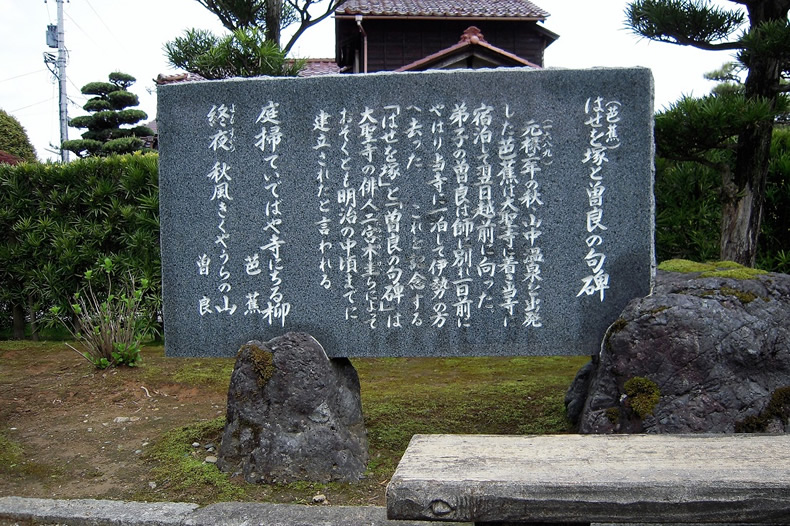 (芭蕉)
はせを塚と曽良の句碑
(一六八九)
元禄二年の秋、山中温泉を出発
した芭蕉は大聖寺に着き当寺に
宿泊して翌日越前に向った。
弟子の曽良は師と別れ一日前に
やはり当寺に一泊して伊勢の方
へ去った これを記念する
「はせを塚」と「曽良の句碑」は
大聖寺の俳人二宮木圭らによって
おそくとも明治の中頃までに
建立されたと言われる
庭掃ていではや寺にちる柳
芭蕉
よもすがら
終夜 秋風きくやうらの山
曽良